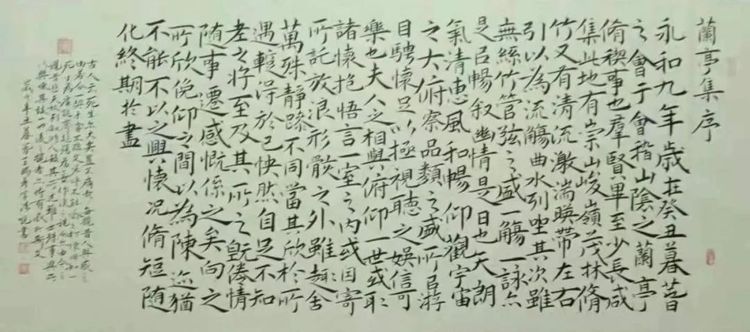 蘭亭集序
永和九年歲在癸丑暮春
之會于會稽山陰之蘭亭
脩稧事也群賢畢至少長咸
集此地有崇山峻嶺茂林脩
竹又有清流激湍暎帶左右
引以為流觴曲水列坐其次雖
無絲竹管弦之盛一觴一詠亦
是以暢叙幽情是日也天朗
氣清惠風和暢仰觀宇宙
之大俯察品類之盛所以游
目騁懷足以極視聽之娛信可
樂也夫人之相與俯仰一世或取
諸懷抱悟言一室之內或因寄
所託放浪形骸之外雖趣舍
萬殊靜躁不同當其欣於所
遇輕得於己快然自足不知
老之將至及其所之既倦情
随事遷感慨係之矣向之
所欣俛仰之間以為陳迹猶
不能不以之興懷況脩短随
化終期於盡
古人云死生亦大矣豈不痛哉每覽昔人興感之
由若合一契未嘗不臨文嗟悼